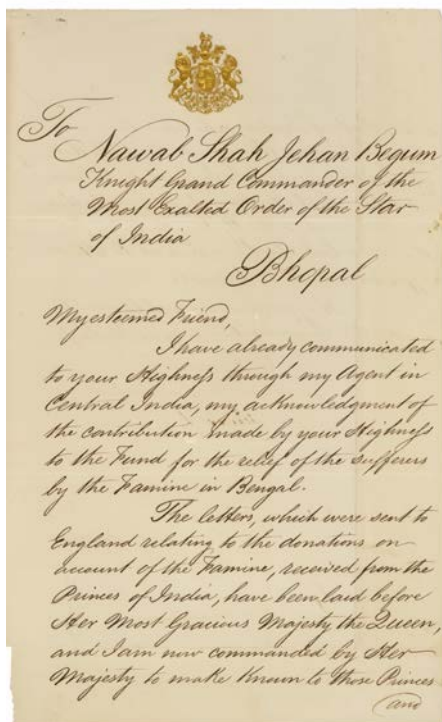 To
Nawab Shah Jehan Begum
Knight Grand Commander of the
Most Exalted Order of the Star
of India
Bhopal
My esteemed Friend,
I have already communicated
to your Highness through my Agent in
Central India, my acknowledgment of
the contribution made by your Highness
to the Fund for the relief of the sufferers
by the Famine in Bengal.
The letters, which were sent to
England relating to the donations on
account of the Famine, received from the
Princes of India, have been laid before
Her Most Gracious Majesty the Queen,
and I am now commanded by Her
Majesty to make known to those Princes
and